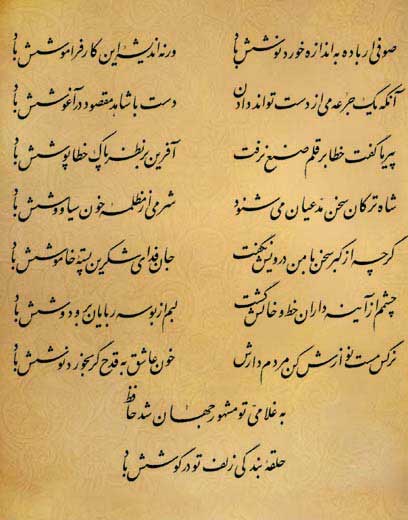 صوفی ار باده به اندازه خورد نوشش باد ورنه اندیشهٔ این کار فراموشش باد
آنکه یک جرعه می از دست تواند دادن دست با شاهد مقصود در آغوشش باد
پیر ما گفت خطا بر قلم صنع نرفت آفرین بر نظر پاک خطا پوشش باد
شاه ترکان سخن مدعیان می شنود شرمی از مظلمه خون سیاووشش باد
گرچه از کبر سخن با من درویش نگفت جان فدای شکرین پستهٔ خاموشش باد
چشمم از آینه داران خط و خالش گشت لبم از بوسه ربایان بر و دوشش باد
نرگس مست نوازش کن مردم دارش خون عاشق به قدح گر بخورد نوشش باد
به غلامی تو مشهور جهان شد حافظ
حلقهٔ بندگی زلف تو در گوشش باد